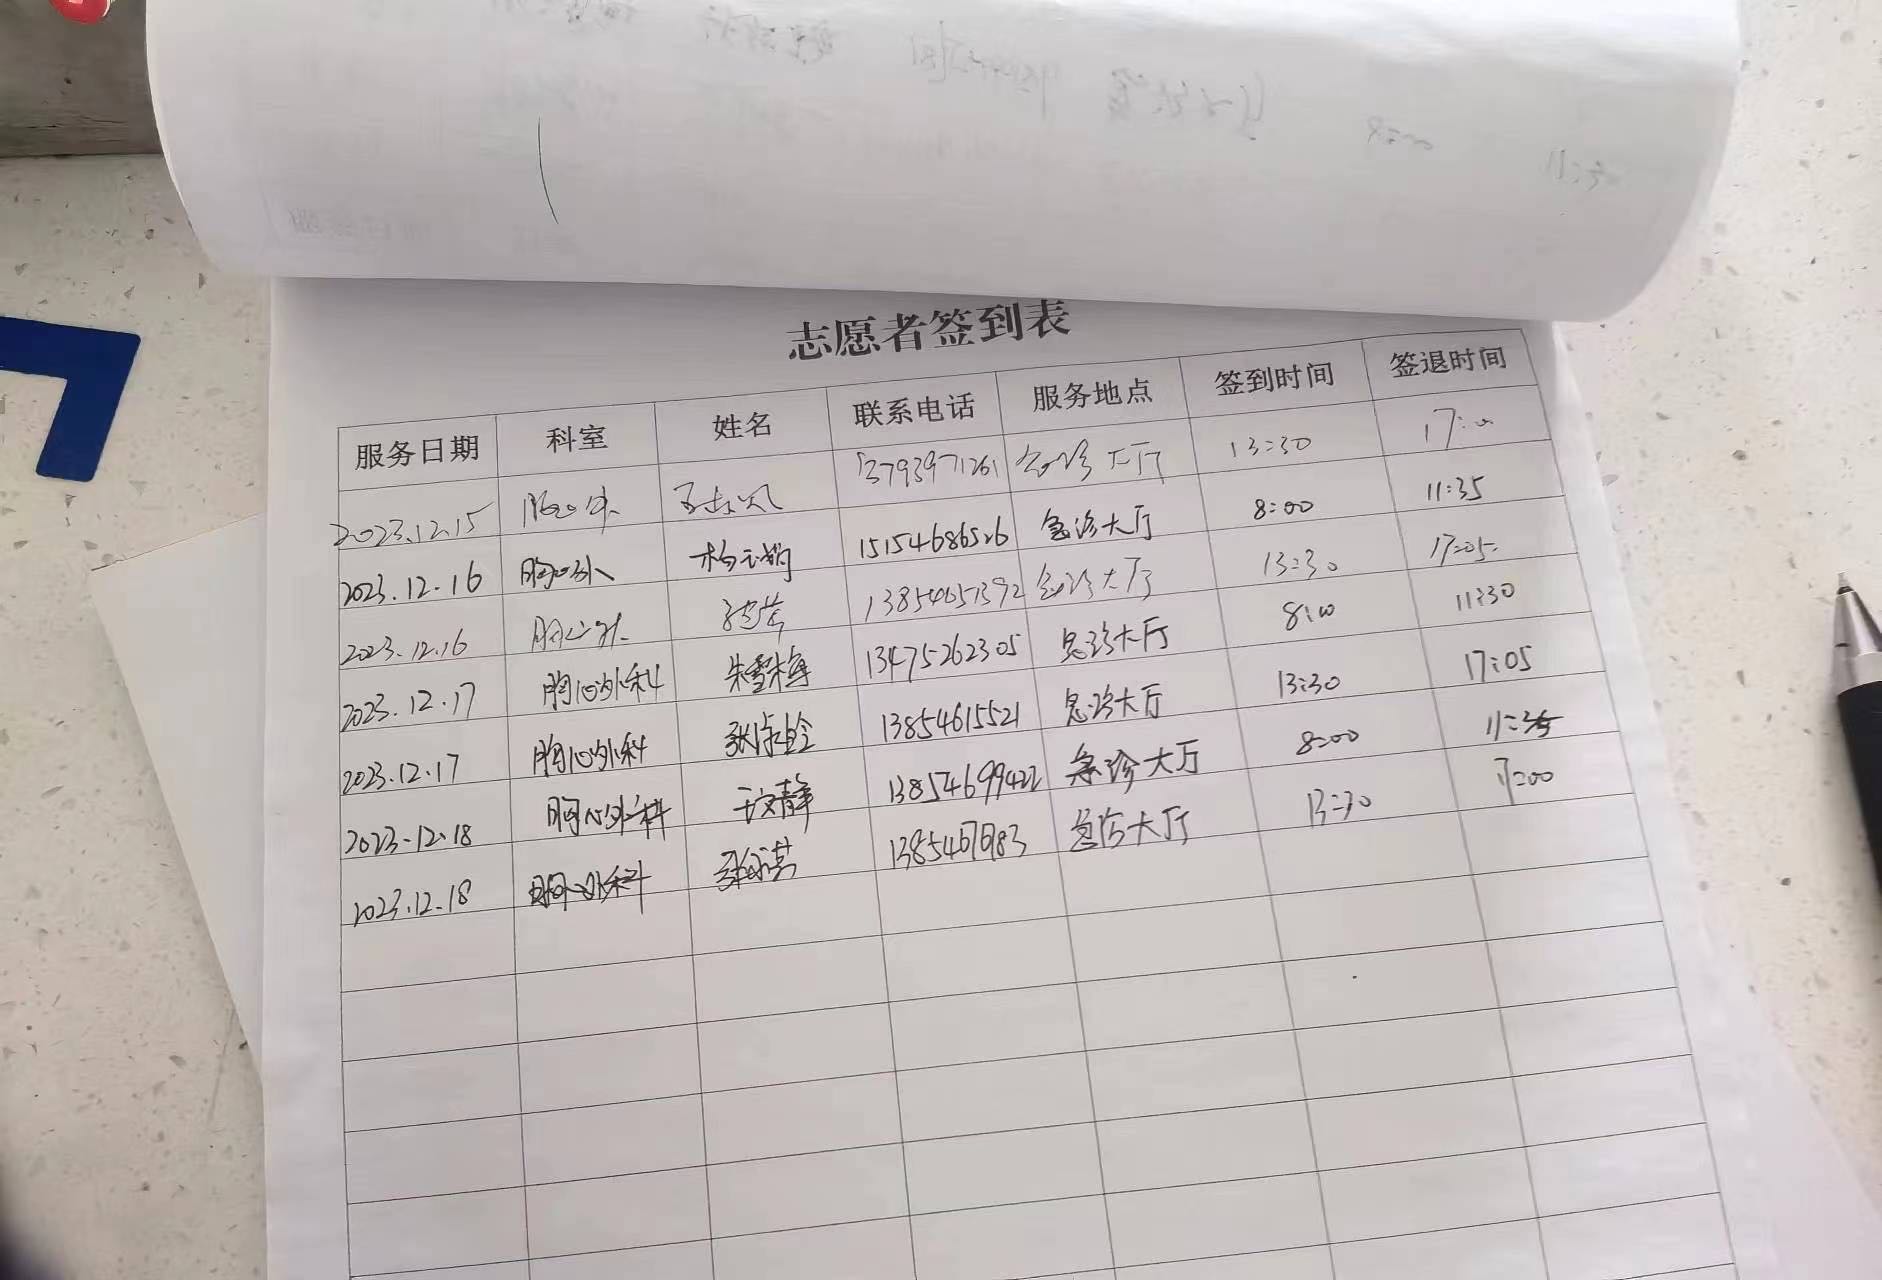 志愿者签到表
服务日期 科室 姓名 联系电话 服务地点 签到时间 签退时间
2023.12.15 13793971261 急诊大厅 13:30 17:00
2023.12.16 胸心外 15154686526 急诊大厅 8:00 11:35
2023.12.16 胸心外 13854651392 急诊大厅 13:30 17:05
2023.12.17 胸心外科 朱雪梅 13475262305 急诊大厅 8:00 11:30
2023.12.17 胸心外科 13854615521 急诊大厅 13:30 17:05
2023.12.18 胸心外科 于文静 13854699422 急诊大厅 8:00 11:35
2023.12.18 胸心外科 急诊大厅 13:30 17:00